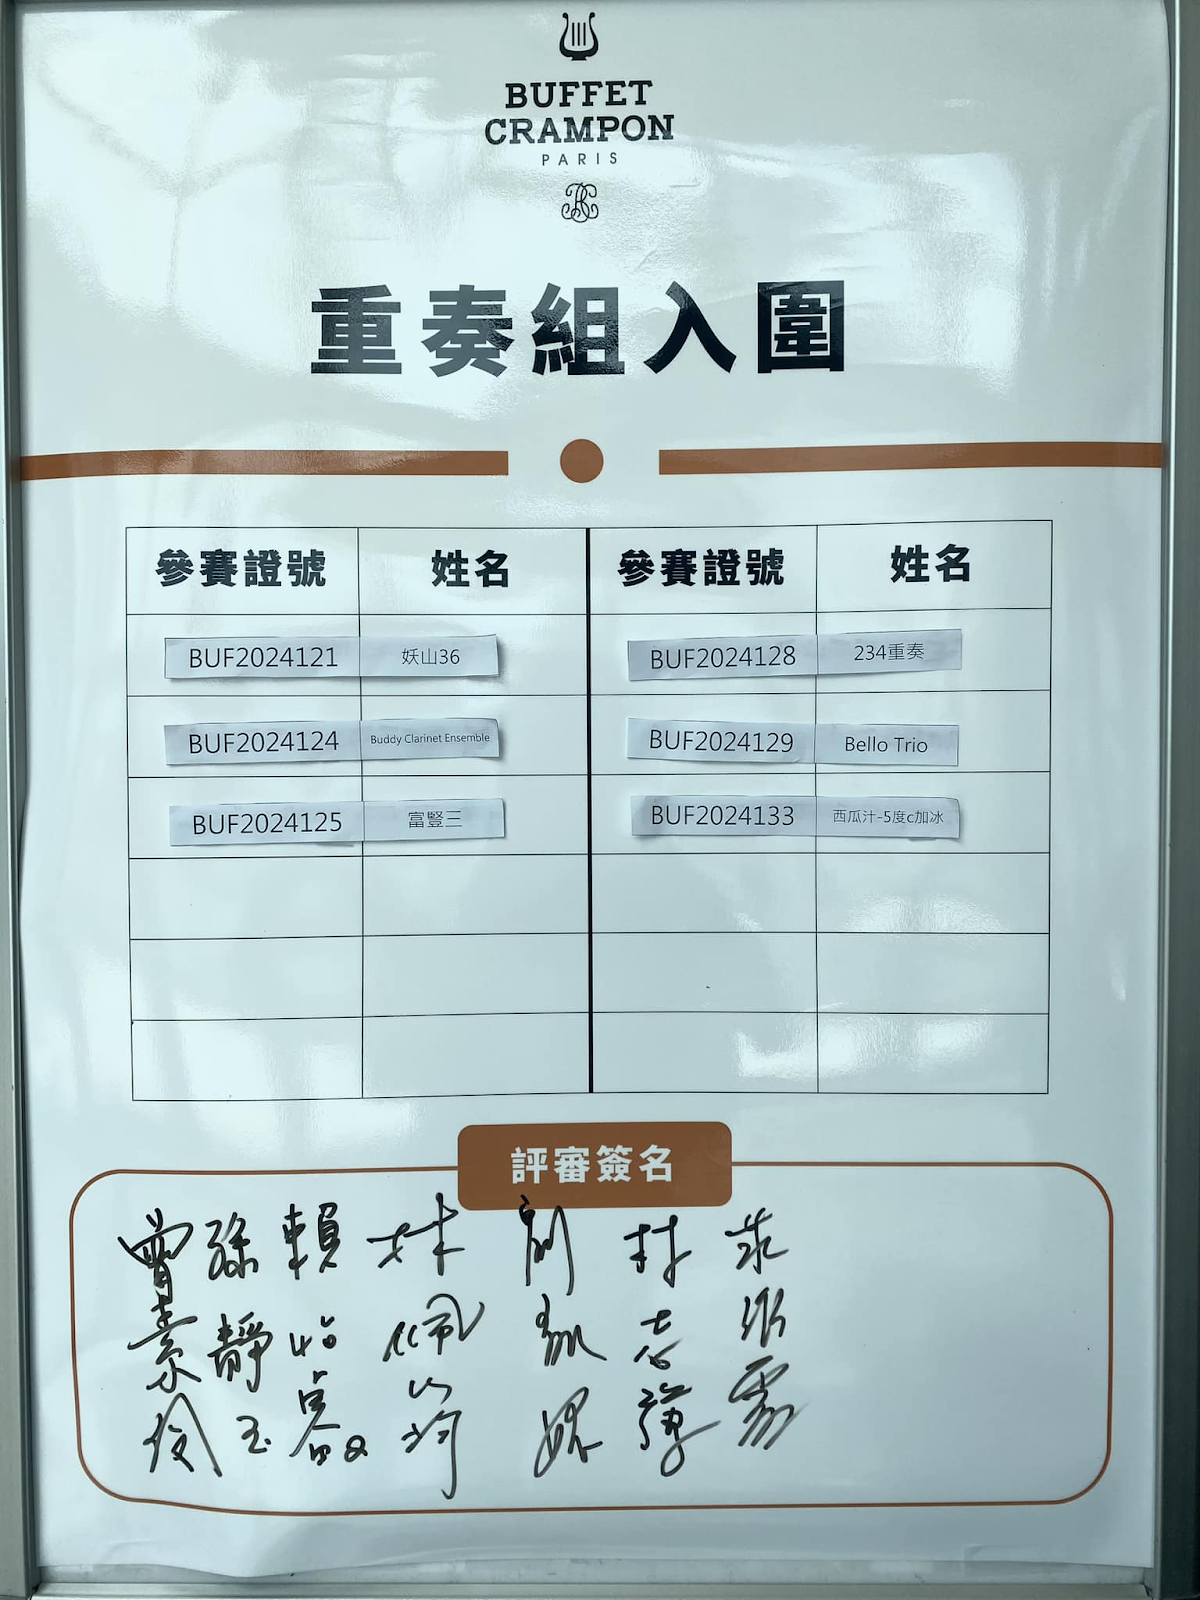 BUFFET
CRAMPON
PARIS
重奏組入圍
參賽證號 姓名 參賽證號 姓名
BUF2024121 妖山36 BUF2024128 234重奏
BUF2024124 Buddy Clarinet Ensemble BUF2024129 Bello Trio
BUF2024125 富豎三 BUF2024133 西瓜汁-5度c加冰
評審簽名
曾素玲
孫靜玉
賴
林佩筠
劉
林志